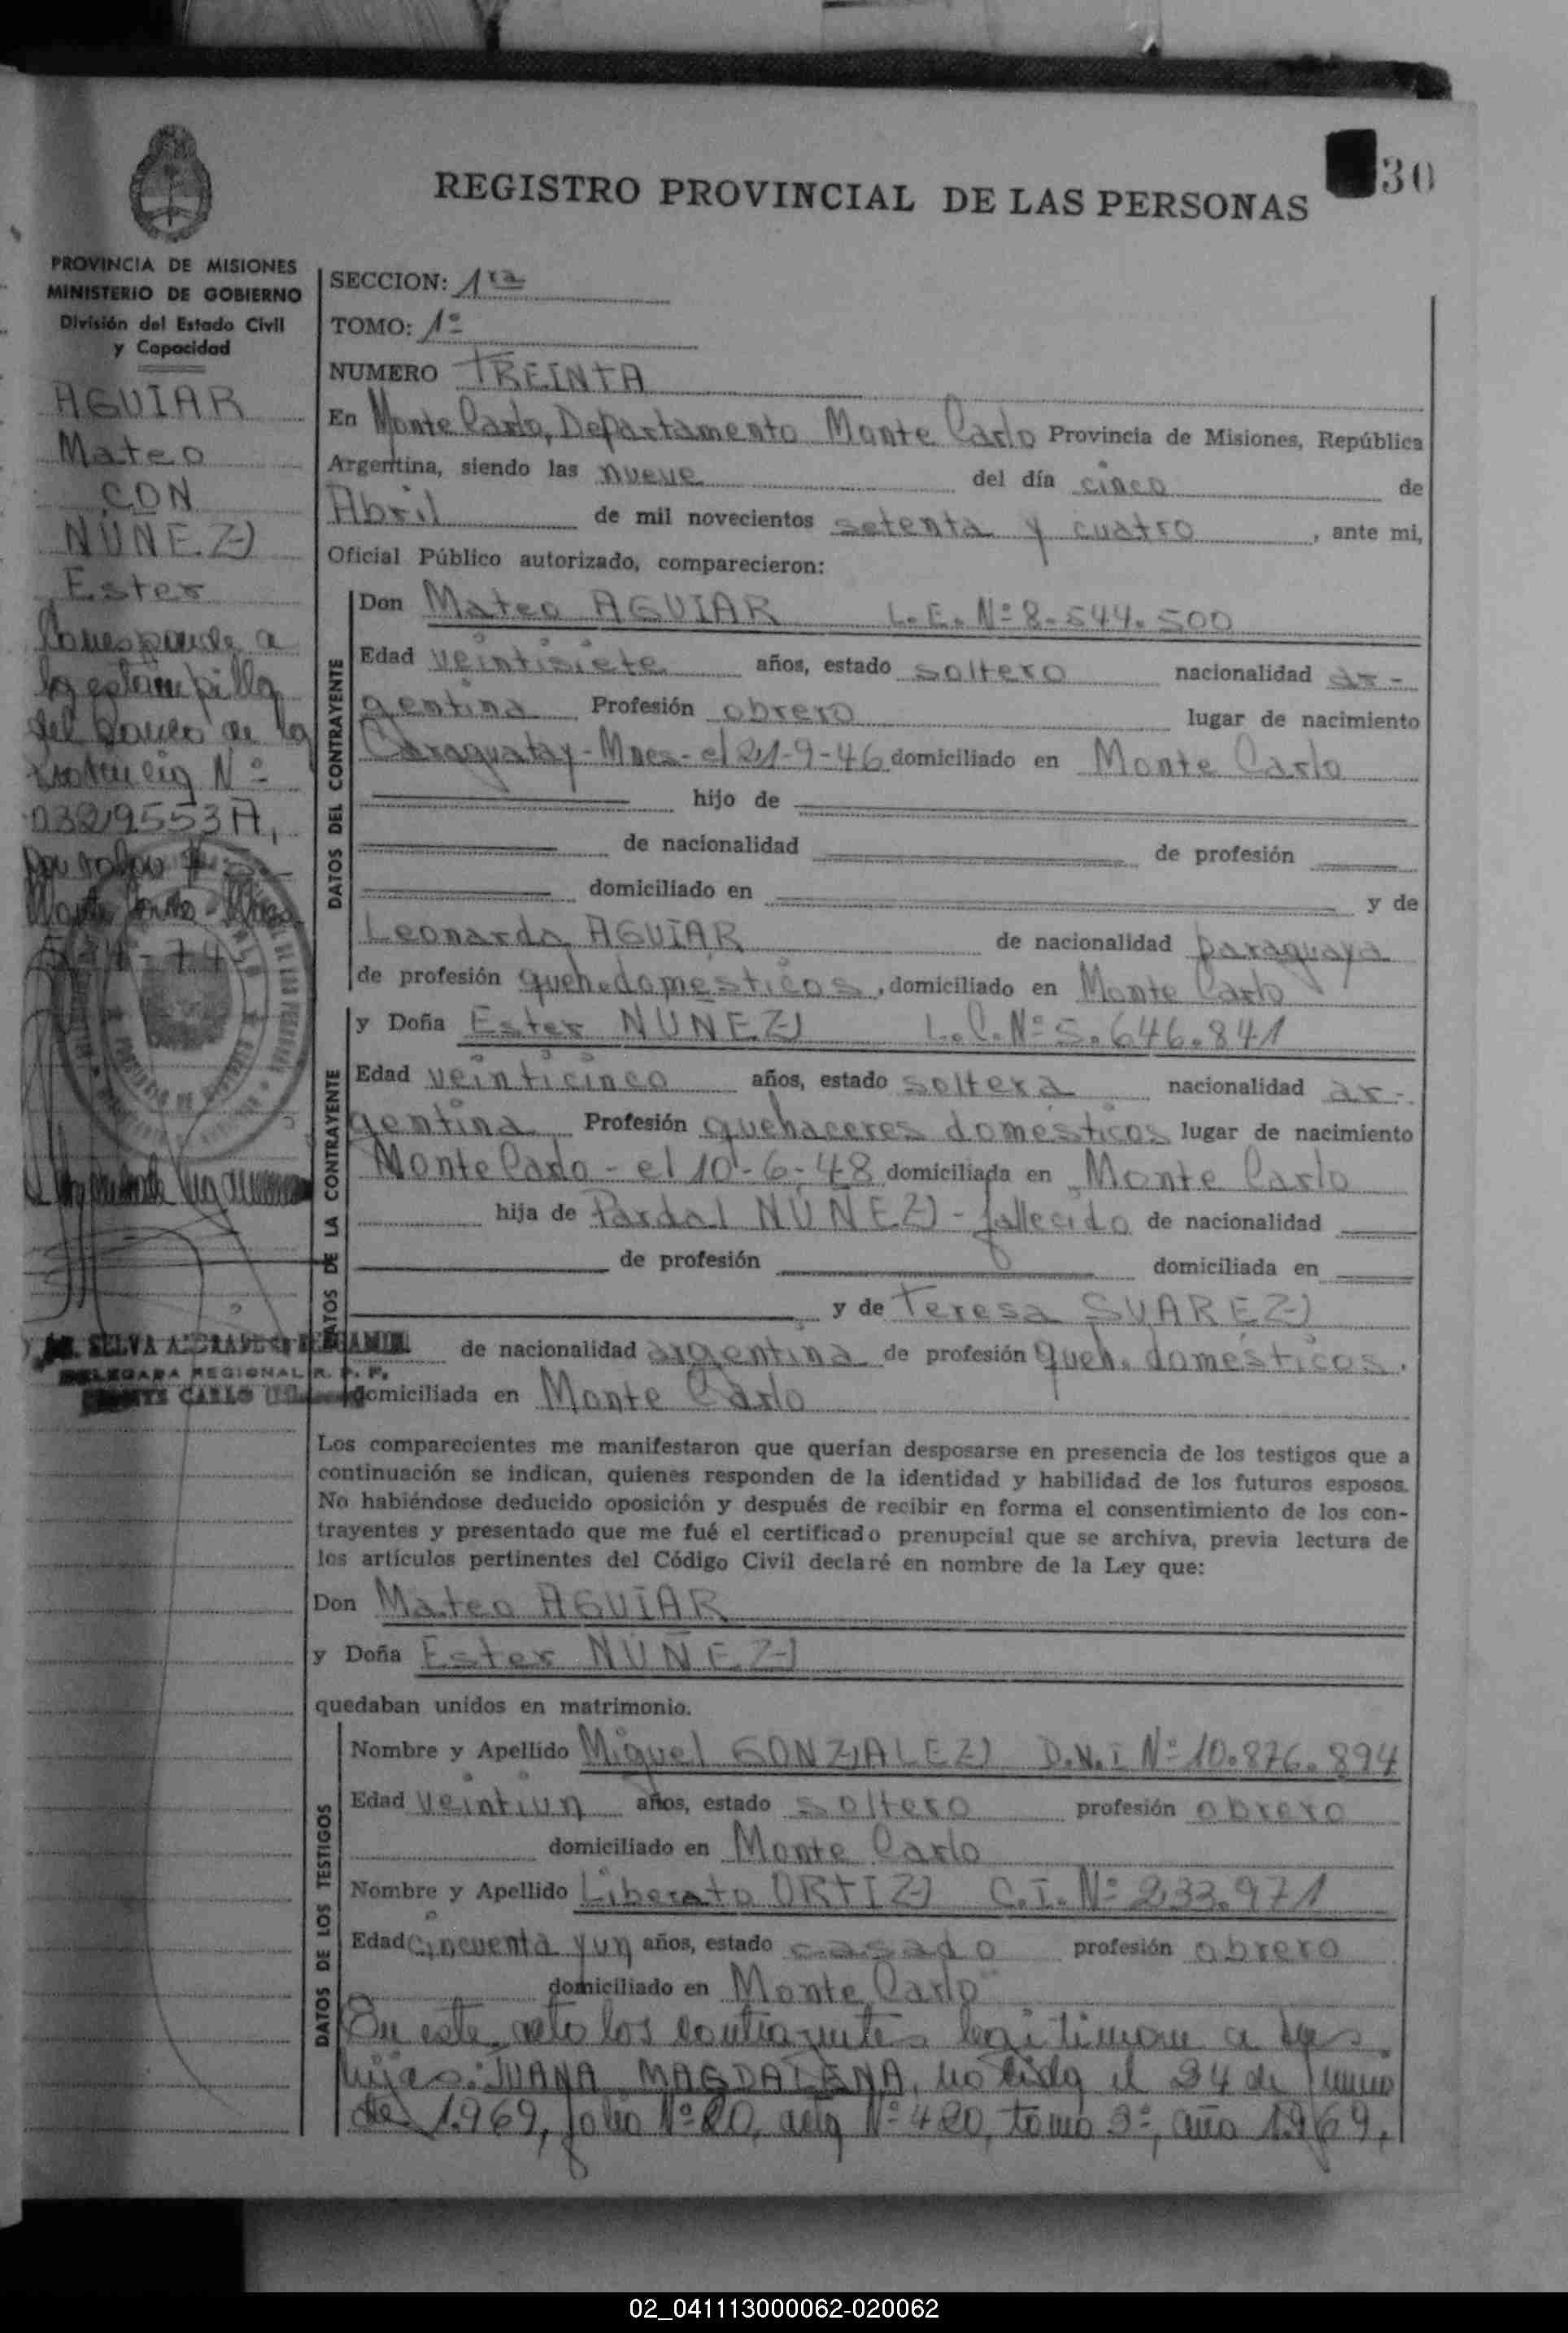 30
REGISTRO PROVINCIAL DE LAS PERSONAS
PROVINCIA DE MISIONES
MINISTERIO DE GOBIERNO
División del Estado Civil
y Capacidad
AGUIAR
Mateo
CON
NUÑEZ
Ester
Corresponde a
la estampilla
del Banco de la
Provincia Nº
0329553 A,
por valor $ 5.-
Monte Carlo - Mnes
5-4-74-
SELVA A.
DELEGADA REGIONAL R. P. P.
MONTE CARLO
SECCION: 1ra
TOMO: 1º
NUMERO TREINTA
En Monte Carlo, Departamento Monte Carlo Provincia de Misiones, República
Argentina, siendo las nueve del día cinco de
Abril de mil novecientos setenta y cuatro, ante mi,
Oficial Público autorizado, comparecieron:
DATOS DEL CONTRAYENTE
Don Mateo AGUIAR L.E. Nº 8.544.500
Edad veintisiete años, estado soltero nacionalidad ar-
gentina Profesión obrero lugar de nacimiento
Caraguatay-Mnes- el 21-9-46 domiciliado en Monte Carlo
hijo de
de nacionalidad de profesión
domiciliado en y de
Leonarda AGUIAR de nacionalidad paraguaya
de profesión queh. domésticos, domiciliado en Monte Carlo
DATOS DE LA CONTRAYENTE
y Doña Ester NUÑEZ L.C. Nº 5.646.841
Edad veinticinco años, estado soltera nacionalidad ar-
gentina Profesión quehaceres domésticos lugar de nacimiento
Monte Carlo - el 10-6-48 domiciliada en Monte Carlo
hija de Pardal NUÑEZ - fallecido de nacionalidad
de profesión domiciliada en
y de Teresa SUAREZ
de nacionalidad argentina de profesión queh. domésticos.
domiciliada en Monte Carlo
Los comparecientes me manifestaron que querían desposarse en presencia de los testigos que a
continuación se indican, quienes responden de la identidad y habilidad de los futuros esposos.
No habiéndose deducido oposición y después de recibir en forma el consentimiento de los con-
trayentes y presentado que me fué el certificado prenupcial que se archiva, previa lectura de
los artículos pertinentes del Código Civil declaré en nombre de la Ley que:
Don Mateo AGUIAR
y Doña Ester NUÑEZ
quedaban unidos en matrimonio.
DATOS DE LOS TESTIGOS
Nombre y Apellido Miguel GONZALEZ D.N.I Nº 10.876.894
Edad veintiun años, estado soltero profesión obrero
domiciliado en Monte Carlo
Nombre y Apellido Liberato ORTIZ C.I. Nº 233.971
Edad cincuenta y un años, estado casado profesión obrero
domiciliado en Monte Carlo
En este acto los contrayentes legitiman a sus
hijas: JUANA MAGDALENA, nacida el 24 de Junio
de 1.969, folio Nº 20, acta Nº 420, tomo 3º, año 1.969,
02_041113000062-020062